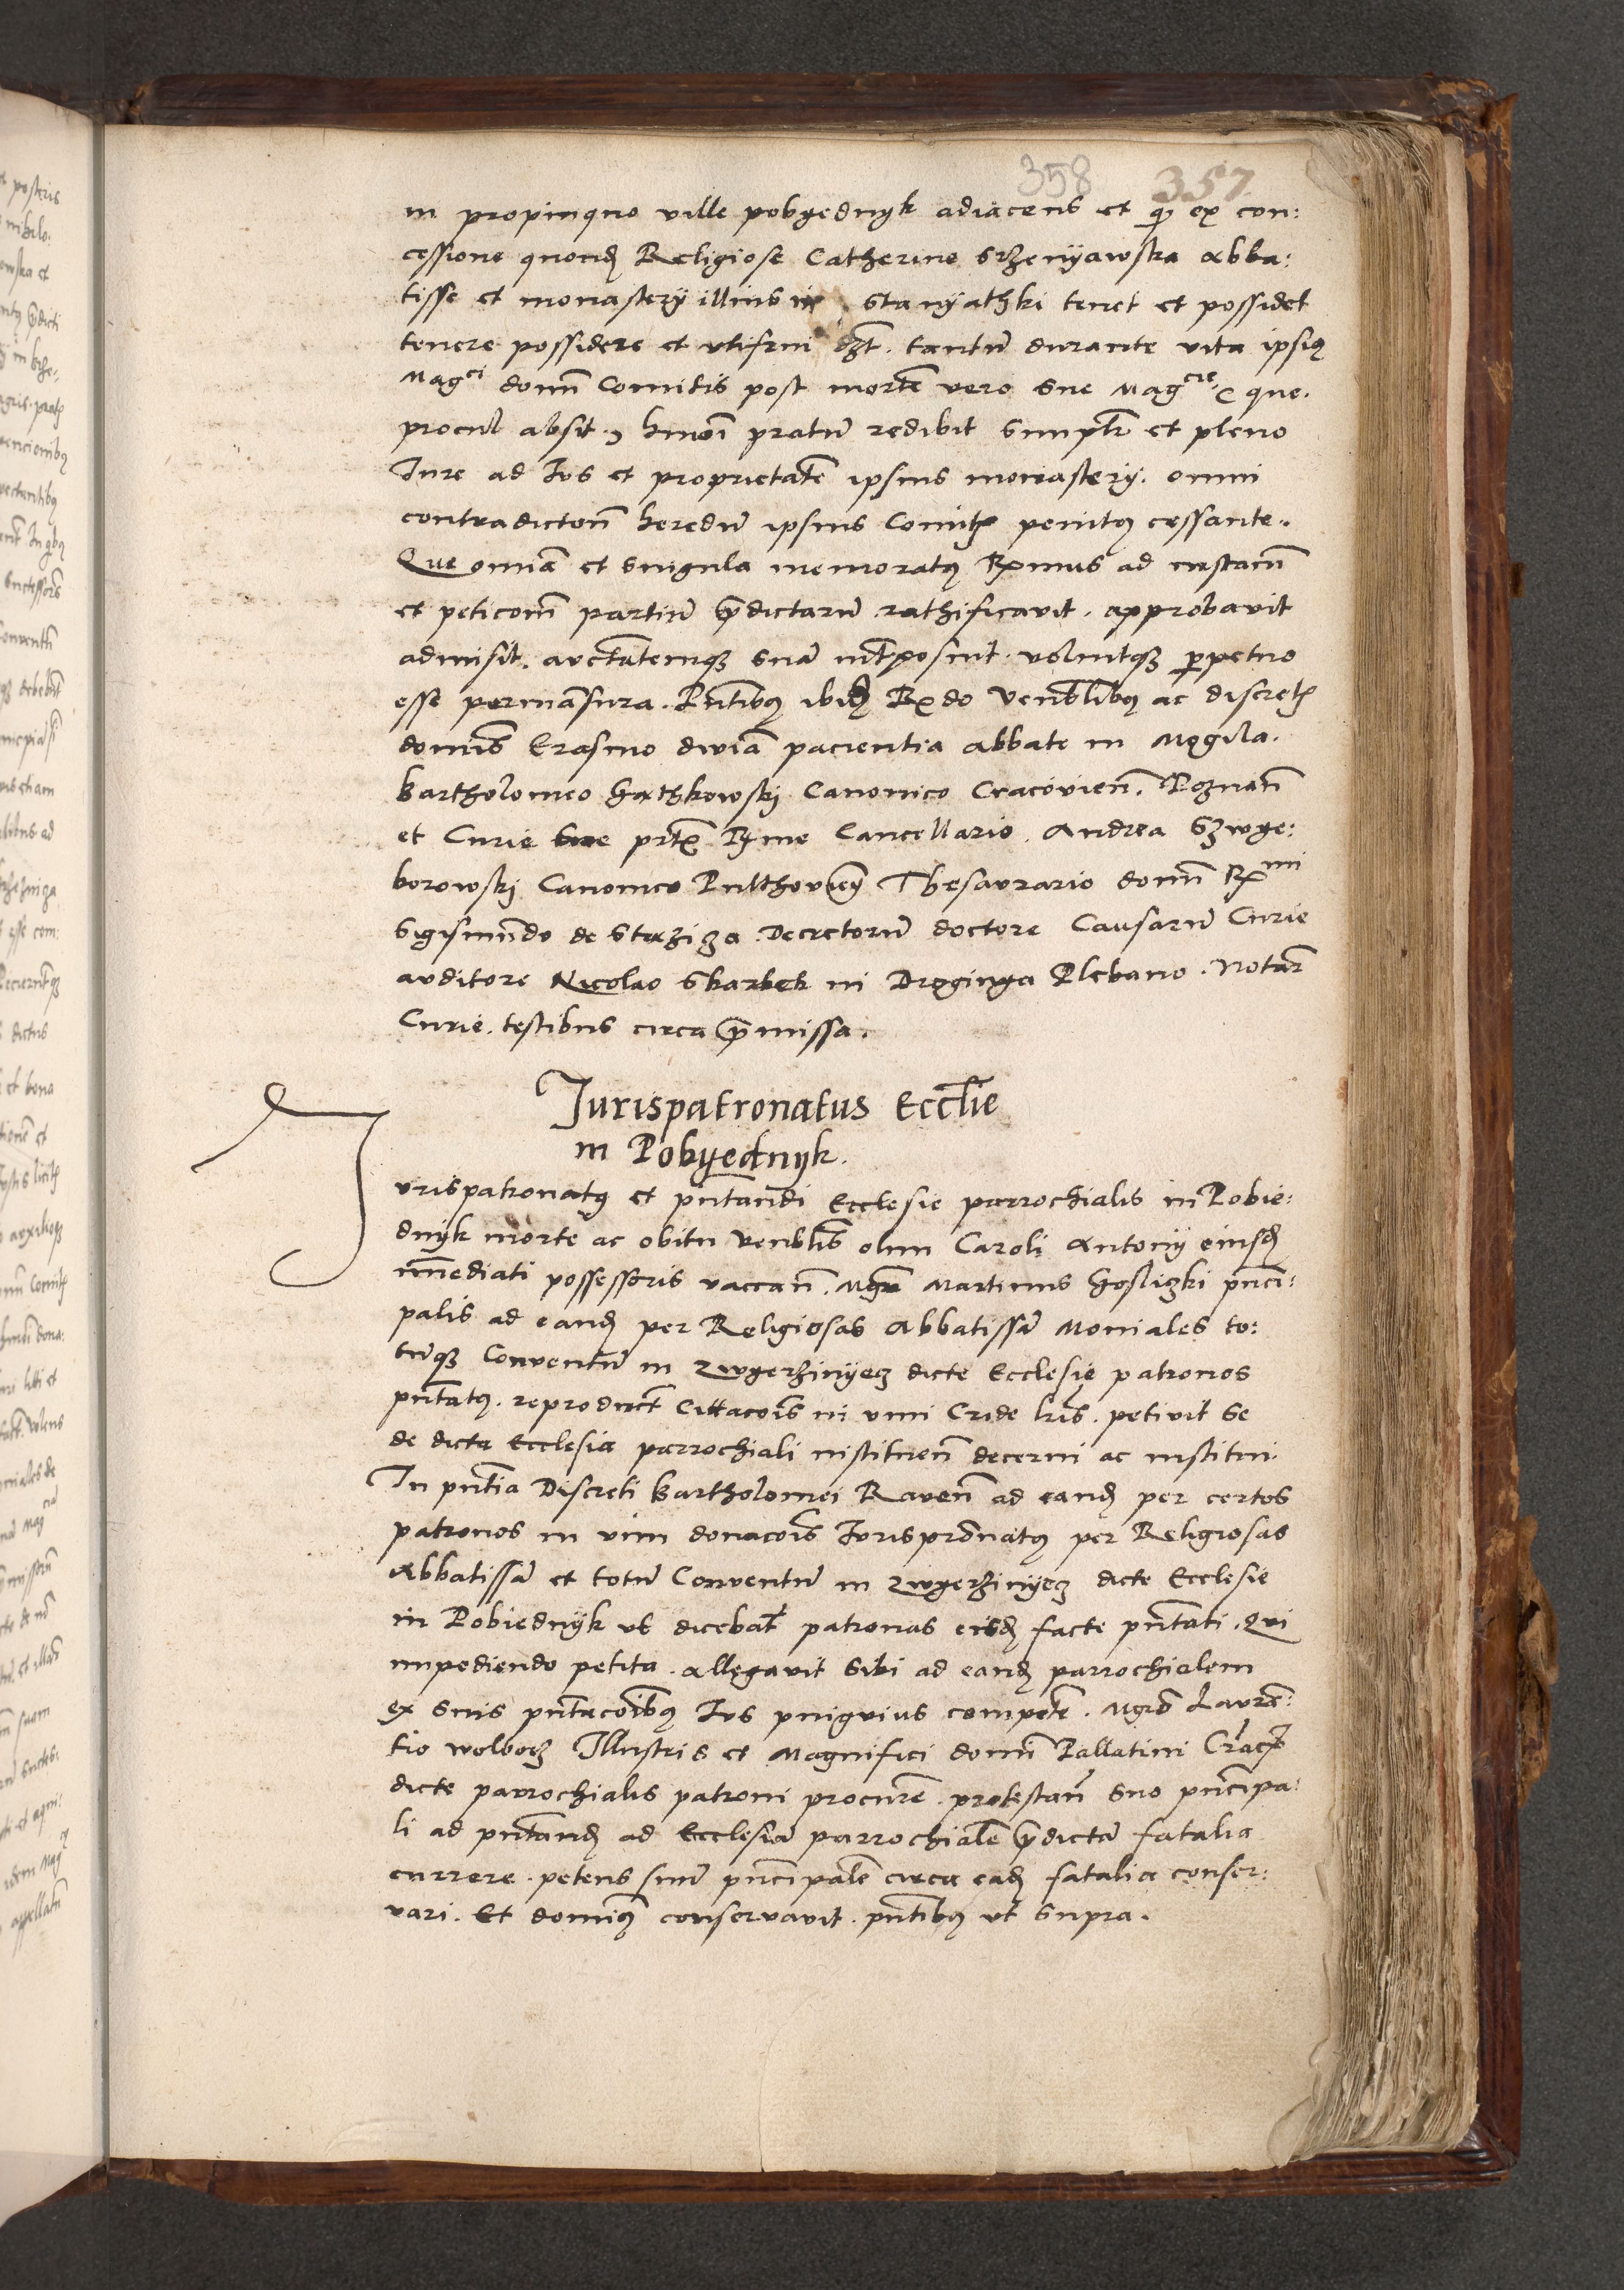 358 357
in propinquo ville pobyednyk adiacens et q̃ ex con:
cessione quond̃ Religiose Catherine Srzenÿawska Abba:
tisse et monasterÿ illius in Stanÿathki tenet et possidet
tenere possidere et utifrui dz̃t. tantũ durante vita ipsiꝰ
Magci domñ Comitis post mortẽ vero sue Magcie, (que.
procul absit.) hmoĩ pratũ redibit simplr̃ et pleno
Jure ad Jus et proprietatẽ ipsius monasterÿ. omni
contradictoñ heredũ ipsius Comitꝭ penitꝰ cessante.
Que omniã et singula memoratꝰ Rx̃mus ad instaciñ
et peticoñ partiũ p̃dictarũ rathificavit. approbavit
admisit. auctt̃atemqꝫ suã int̃posuit voluitqꝫ ꝑpetuo
esse permãsura. Pñtibꝰ ibid̃ Rx̃do Venbl̃ibꝰ ac discretꝭ
domiñs Erasmo diviã paciencia abbate in Mogila.
Bartholomeo Gathkowskj Canonico Cracovieñ. Poznañ
et Curie sue prt̃ꝭ Rx̃me Cancellario. Andrea Szwye:
borowskj Canonico Pulthovieñ Thesaurario domñ Rx̃mi
Sigismũndo de Staziza Decretorũ doctore Causarũ Curie
auditore Nicolao Skarbek in Droginya Plebano. Notar̃
Curie. testibus circa p̃missa.
Jurispatronatus Eccl̃ie
in Pobyednyk.
Jurispatronatꝰ et pñtandi Ecclesie parrochialis in Pobie:
dnyk morte ac obitu venbl̃is olim Caroli Antonÿ eiusd̃
immediati possessoris vaccañ. Mgr̃ Martinus Goslizki prĩnci:
palis ad eand̃ per Religiosas Abbatissã Moniales to:
tumqꝫ Conventũ in Zwyerzinÿecz dicte Ecclesie patronos
pñtatꝰ. reproduct̃ Cittacoĩs in vim Cride lrĩs. petivit se
de dicta Ecclesia parrochiali instituenñ decerni ac institui.
In pñtia Discreti Bartholomei Raveñ ad eand̃ per certos
patronos in vim donacoĩs Jurisprõnatꝰ per Religiosas
Abbatissã et totũ Conventũ in Zwyerzinÿecz dicte Ecclesie
in Pobiednÿk ut dicebat̃ patronas eisd̃ facte pñtati. Qui
impediendo petita. allegavit sibi ad eand̃ parrochialem
ex suis pñtacoĩbꝰ Jus pinguius competẽ. Mgrõ Laurẽ:
tio Wolborz Illustris et Magnifici domĩ Pallatini Cracꝭ
dicte parrochialis patroni procurẽ. protestañ suo prĩncipa:
li ad pñtand̃ ad Ecclesiã parrochialẽ p̃dictã fatalia
currere. petens suũ prĩncipalẽ circa ead̃ fatalia conser:
vari. Et domiñꝰ conservavit. pñtibꝰ ut supra.